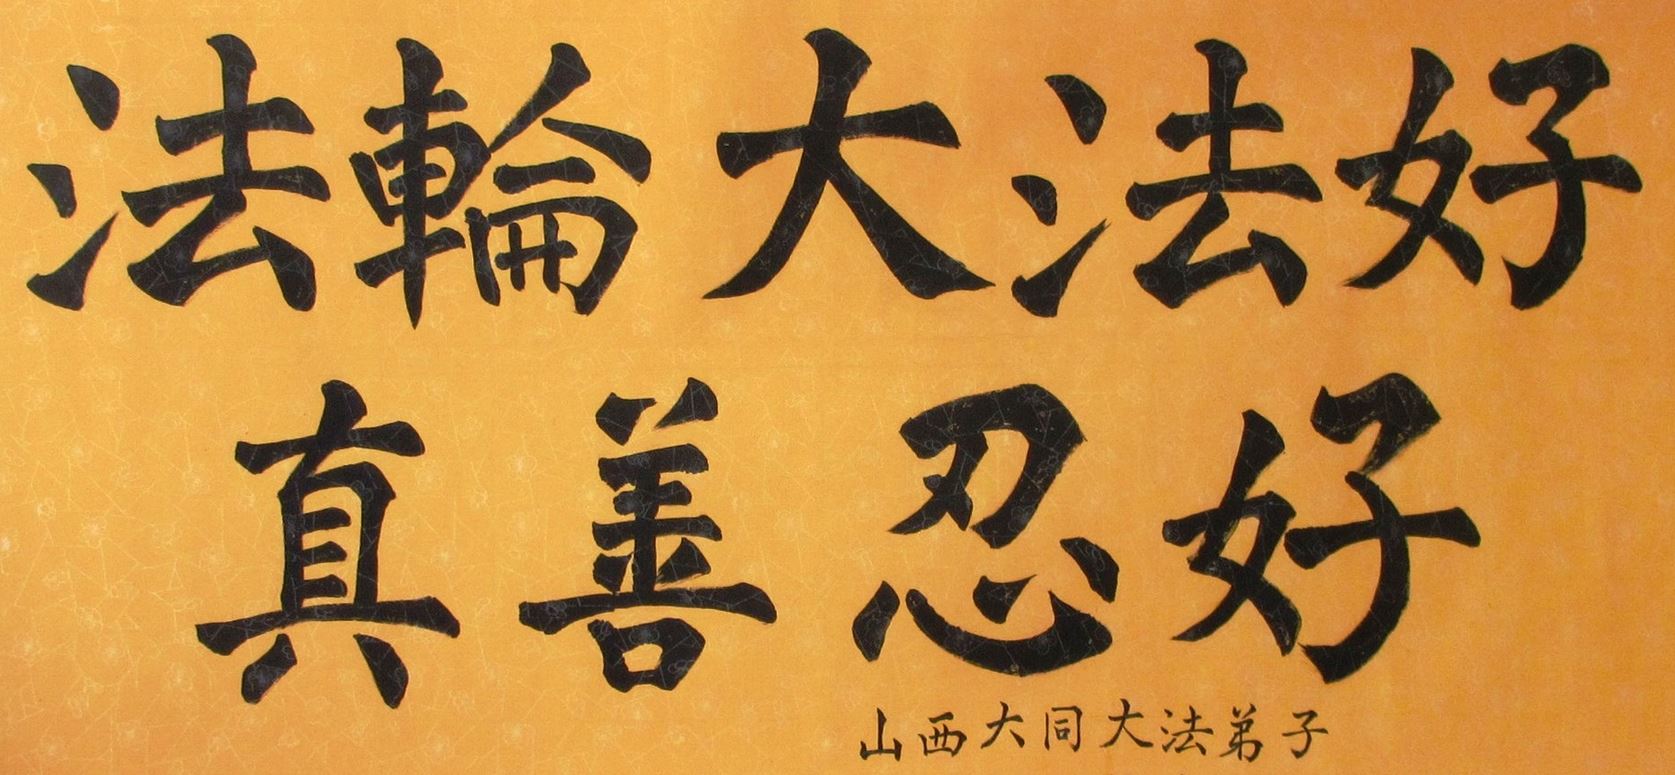 法輪大法好
真善忍好
山西大同大法弟子